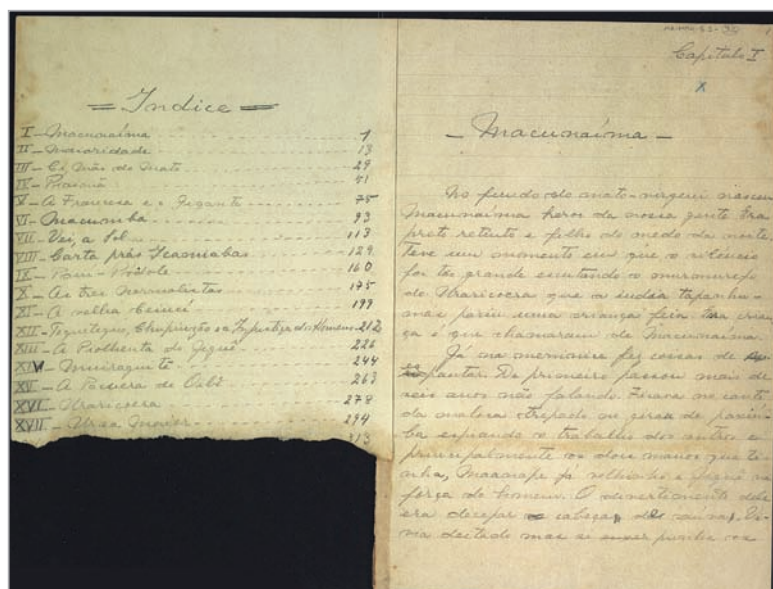 = Indice =
I – Macunaíma 1
II – Maioridade 13
III – Ci, Mãe do Mato 29
IV – Piaimã 51
V – A Francesa e o Gigante 75
VI – Macumba 93
VII – Vei, a Sol 113
VIII – Carta prás Icamiabas 129
IX – Pauí-Pódole 160
X – As tres Normalistas 175
XI – A velha Ceiuci 199
XII – Tequeteque, Chupinzão e a Injustiça dos Homens 212
XIII – A Piolhenta do Jiguê 226
XIV – Muiraquitã 244
XV – A Pacuera de Oibê 263
XVI – Uraricoera 278
XVII – Ursa Maior 294
313
Capítulo I
X
– Macunaíma –
No fundo do mato-virgem nasceu
Macunaíma heroi da nossa gente. Era
preto retinto e filho do medo da noite.
Teve um momento em que o silencio
foi tão grande escutando o murmurejo
do Uraricoera que a india tapanhu-
mas pariu uma criança feia. Essa crian
ça é que chamaram de Macunaíma.
Já na meninice fez coisas de
espantar. De primeiro passou mais de
seis anos não falando. Ficava no canto
da maloca trepado no girau de paxiú-
ba espiando o trabalho dos outros e
principalmente os dois manos que ti-
nha, Maanape já velhinho e Jiguê na
força do homem. O divertimento dele
era decepar cabeça de saúva. Vi-
via deitado mas si punha os